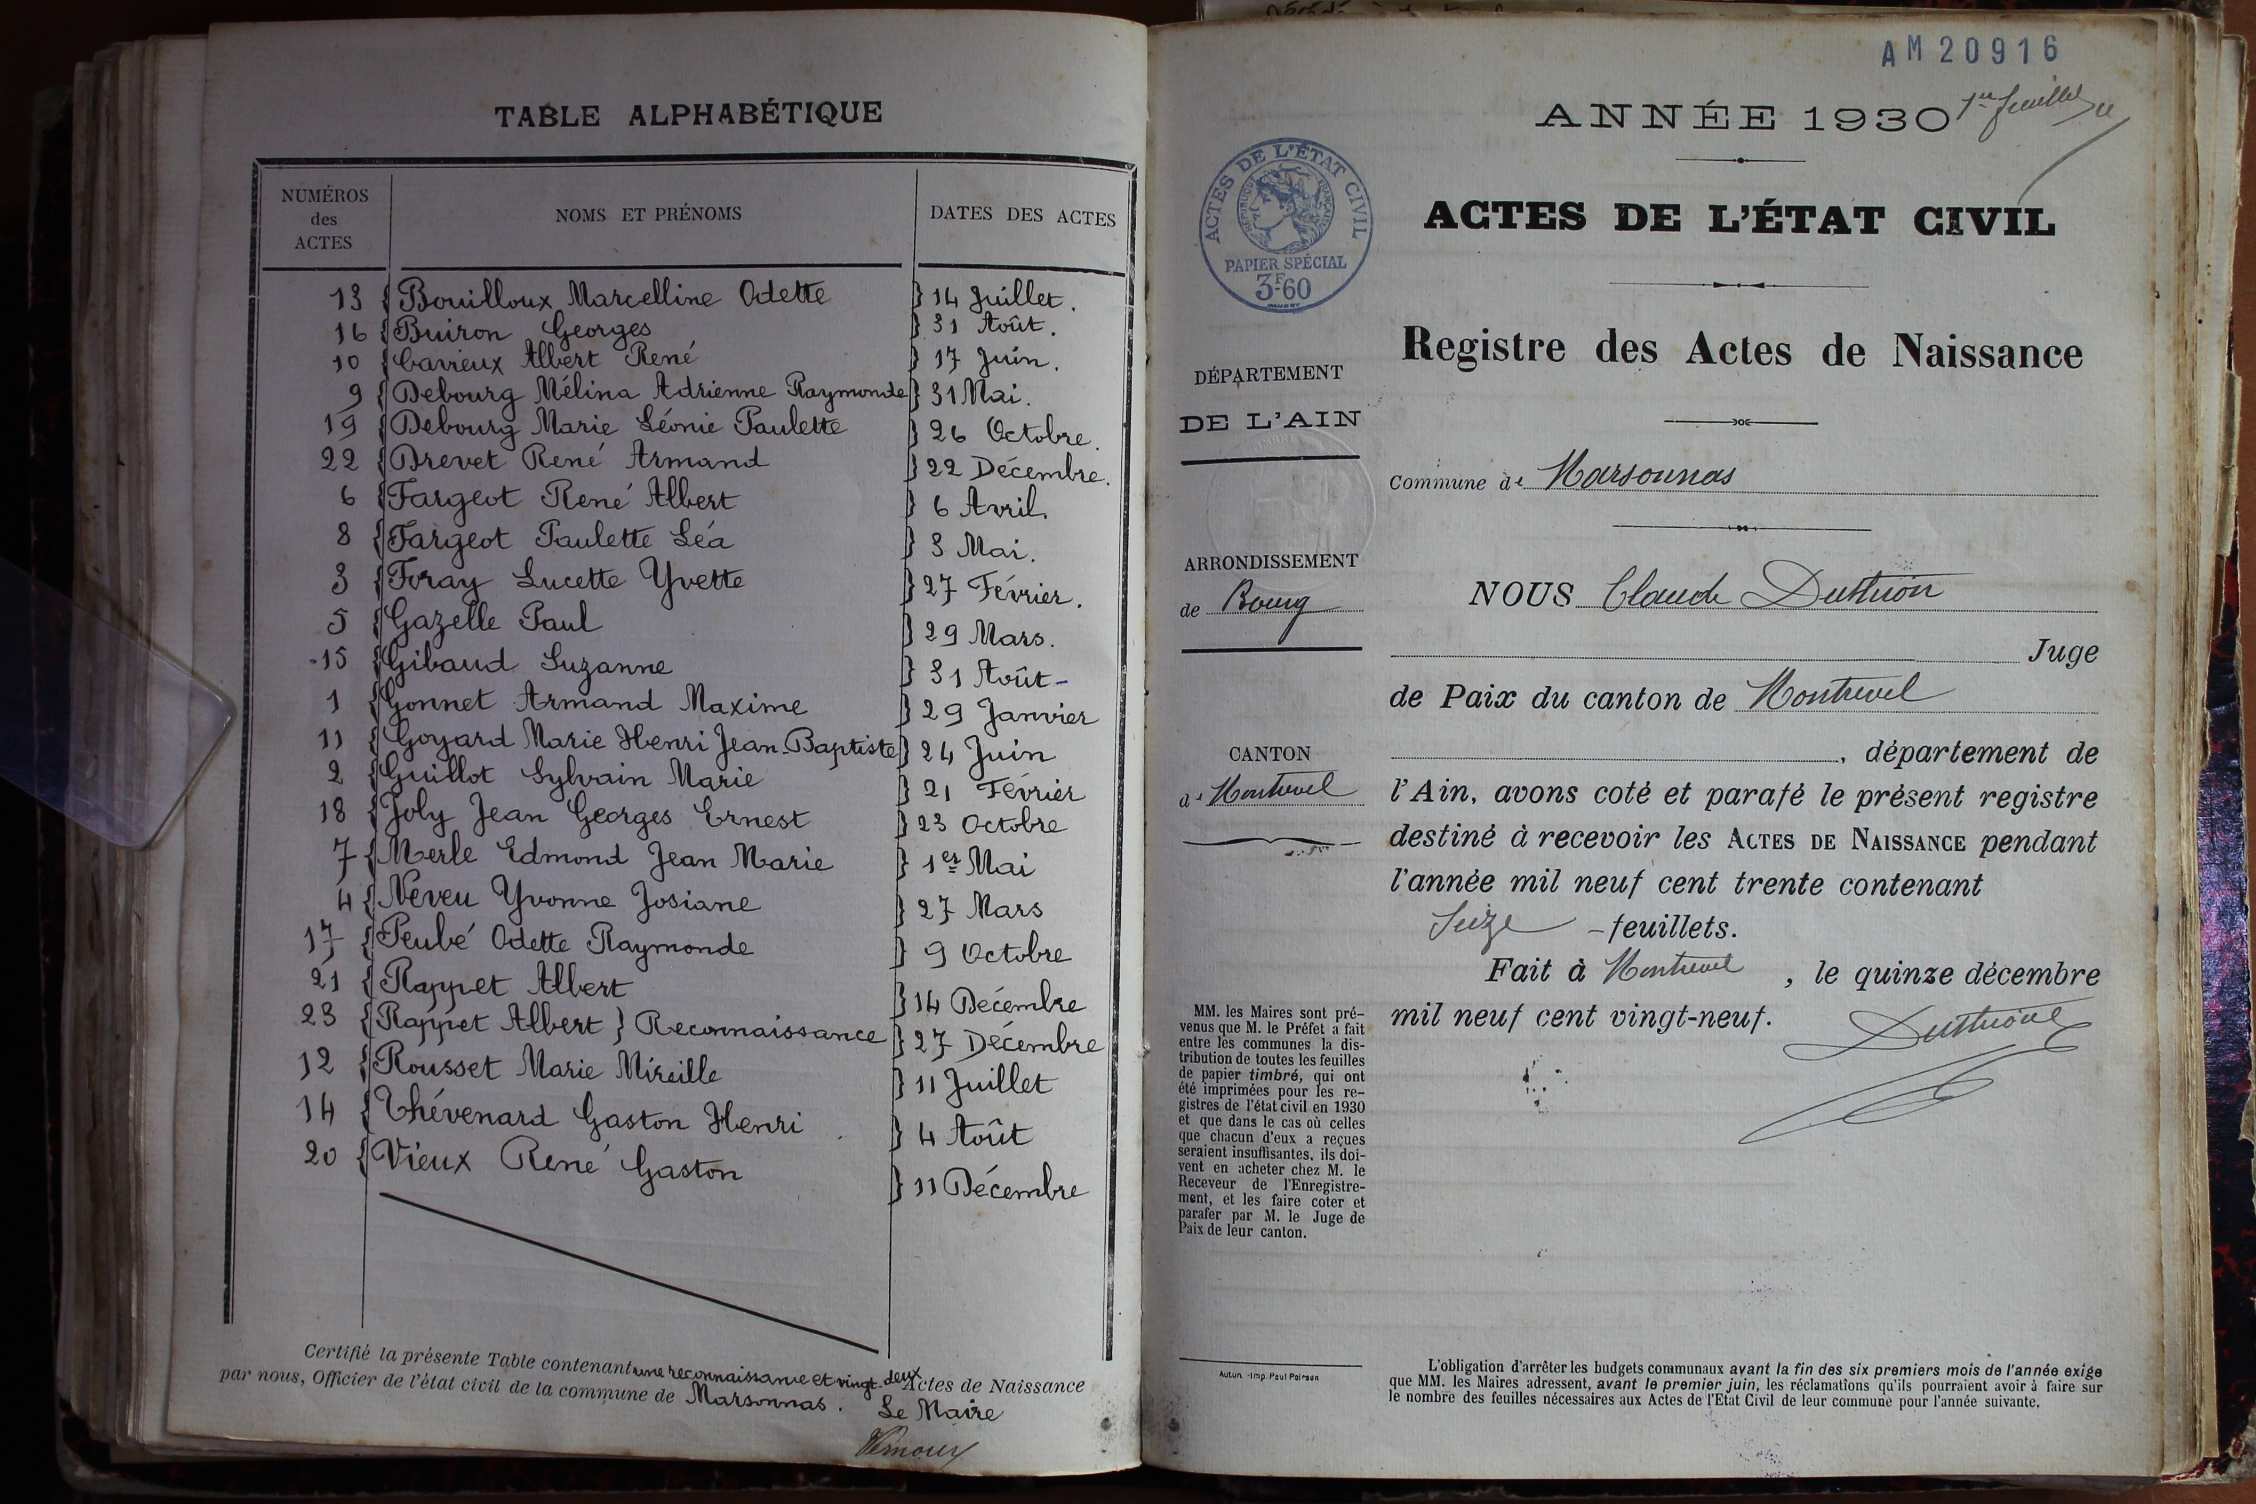 TABLE ALPHABÉTIQUE
NUMÉROS des ACTES NOMS ET PRÉNOMS DATES DES ACTES
13 { Bouilloux Marcelline Odette } 14 Juillet.
16 { Buiron Georges } 31 Août.
10 { Cavieux Albert René } 17 Juin.
9 { Debourg Mélina Adrienne Raymonde } 31 Mai.
19 { Debourg Marie Léonie Paulette } 26 Octobre.
22 { Drevet René Armand } 22 Décembre.
6 { Fargeot René Albert } 6 Avril.
8 { Fargeot Paulette Léa } 3 Mai.
3 { Foray Lucette Yvette } 27 Février.
5 { Gazelle Paul } 29 Mars.
15 { Gibaud Suzanne } 31 Août-
1 { Gonnet Armand Maxime } 29 Janvier
11 { Goyard Marie Henri Jean-Baptiste } 24 Juin
2 { Guillot Sylvain Marie } 21 Février
18 { Joly Jean Georges Ernest } 23 Octobre
7 { Merle Edmond Jean Marie } 1er Mai
4 { Neveu Yvonne Josiane } 27 Mars
17 { Peubé Odette Raymonde } 9 Octobre
21 { Rappet Albert } 14 Décembre
23 { Rappet Albert } Reconnaissance } 27 Décembre
12 { Rousset Marie Mireille } 11 Juillet
14 { Thévenard Gaston Henri } 4 Août
20 { Vieux René Gaston } 11 Décembre
Certifié la présente Table contenant une reconnaissance et vingt-deux Actes de Naissance
par nous, Officier de l'état civil de la commune de Marsonnas.
Le Maire
AM 20916
ANNÉE 1930 1er feuillet
ACTES DE L'ÉTAT CIVIL
RÉPUBLIQUE FRANÇAISE
PAPIER SPÉCIAL
3F.60
ACTES DE L'ÉTAT CIVIL
Registre des Actes de Naissance
DÉPARTEMENT
DE L'AIN
Commune de Marsonnas
ARRONDISSEMENT
de Bourg
NOUS Claude Duthion
Juge
de Paix du canton de Montrevel
CANTON
de Montrevel
, département de
l'Ain, avons coté et parafé le présent registre
destiné à recevoir les ACTES DE NAISSANCE pendant
l'année mil neuf cent trente contenant
Seize - feuillets.
Fait à Montrevel, le quinze décembre
mil neuf cent vingt-neuf.
MM. les Maires sont pré-
venus que M. le Préfet a fait
entre les communes la dis-
tribution de toutes les feuilles
de papier timbré, qui ont
été imprimées pour les re-
gistres de l'état civil en 1930
et que dans le cas où celles
que chacun d'eux a reçues
seraient insuffisantes, ils doi-
vent en acheter chez M. le
Receveur de l'Enregistre-
ment, et les faire coter et
parafer par M. le Juge de
Paix de leur canton.
Autun. - Imp. Paul Poirson
L'obligation d'arrêter les budgets communaux avant la fin des six premiers mois de l'année exige
que MM. les Maires adressent, avant le premier juin, les réclamations qu'ils pourraient avoir à faire sur
le nombre des feuilles nécessaires aux Actes de l'Etat Civil de leur commune pour l'année suivante.